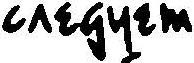 следует